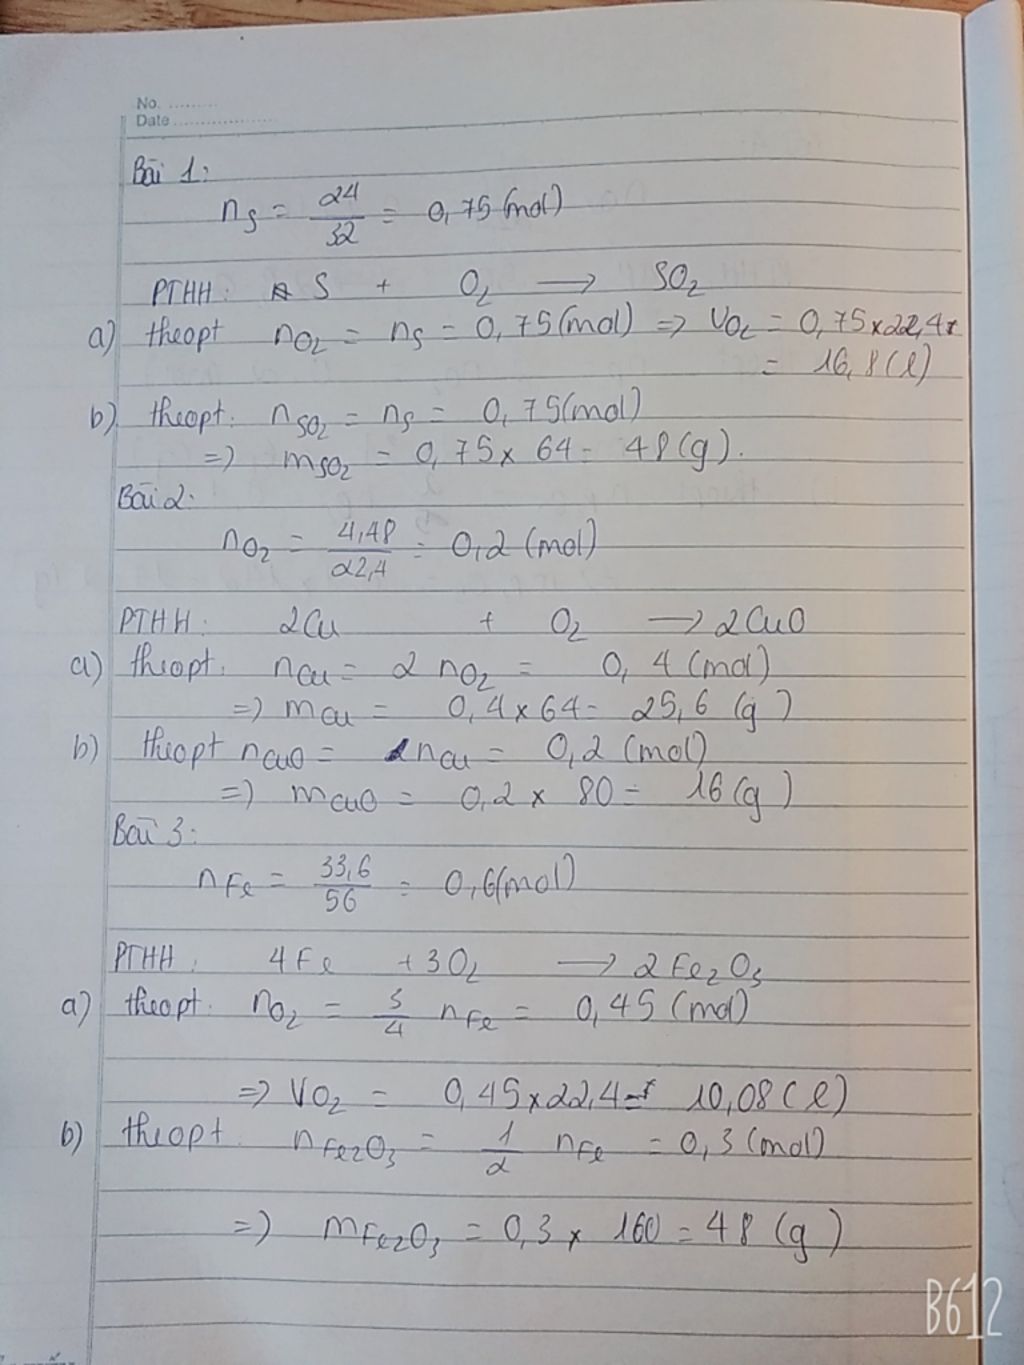 No. .........
Date ..................
Bài 1:
nS = 24/32 = 0,75 (mol)
PTHH: S + O2 → SO2
a) theopt nO2 = nS = 0,75 (mol) => VO2 = 0,75 x 22,4
= 16,8 (l)
b) theopt: nSO2 = nS = 0,75 (mol)
=> mSO2 = 0,75 x 64 = 48 (g).
Bài 2:
nO2 = 4,48/22,4 = 0,2 (mol)
PTHH: 2Cu + O2 → 2CuO
a) theopt: nCu = 2 nO2 = 0,4 (mol)
=> mCu = 0,4 x 64 = 25,6 (g)
b) theopt nCuO = 2nCu = 0,2 (mol)
=> mCuO = 0,2 x 80 = 16 (g)
Bài 3:
nFe = 33,6/56 = 0,6 (mol)
PTHH: 4Fe + 3O2 → 2Fe2O3
a) theopt: nO2 = 3/4 nFe = 0,45 (mol)
=> VO2 = 0,45 x 22,4 = 10,08 (l)
b) theopt nFe2O3 = 1/2 nFe = 0,3 (mol)
=> mFe2O3 = 0,3 x 160 = 48 (g)
B612